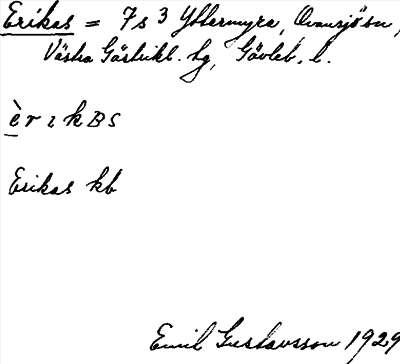 Erikas = 7 s 3 Yttermyra, Ovansjö sn,
Västra Gästrikl. hg, Gävleb. l.
è r ɩ k B S
Erikas kb
Emil Gustavsson 1929